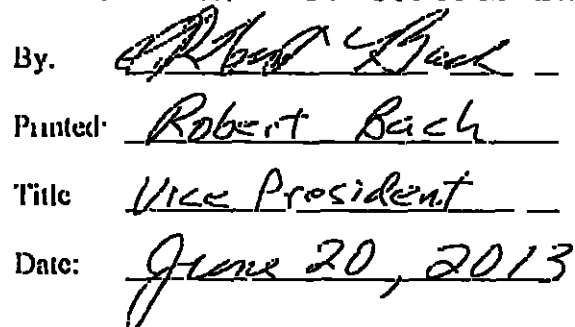 By. Robert Bach
Printed: Robert Bach
Title Vice President
Date: June 20, 2013